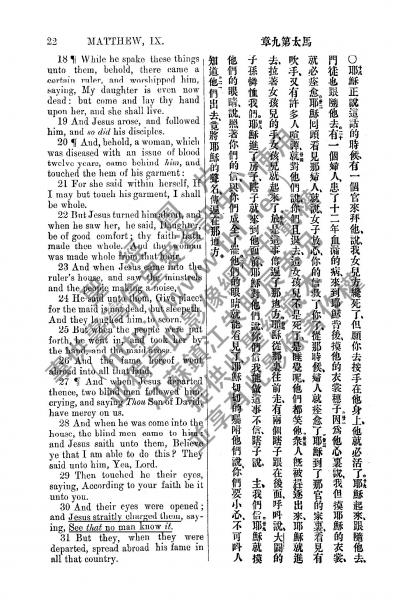 22 MATTHEW, IX.
18 ¶ While he spake these things
unto them, behold, there came a
certain ruler, and worshipped him,
saying, My daughter is even now
dead: but come and lay thy hand
upon her, and she shall live.
19 And Jesus arose, and followed
him, and so did his disciples.
20 ¶ And, behold, a woman, which
was diseased with an issue of blood
twelve years, came behind him, and
touched the hem of his garment:
21 For she said within herself, If
I may but touch his garment, I shall
be whole.
22 But Jesus turned him about, and
when he saw her, he said, Daughter,
be of good comfort; thy faith hath
made thee whole. And the woman
was made whole from that hour.
23 And when Jesus came into the
ruler's house, and saw the minstrels
and the people making a noise,
24 He said unto them, Give place:
for the maid is not dead, but sleepeth.
And they laughed him to scorn.
25 But when the people were put
forth, he went in, and took her by
the hand, and the maid arose.
26 And the fame hereof went
abroad into all that land.
27 ¶ And when Jesus departed
thence, two blind men followed him,
crying, and saying, Thou Son of David,
have mercy on us.
28 And when he was come into the
house, the blind men came to him:
and Jesus saith unto them, Believe
ye that I am able to do this? They
said unto him, Yea, Lord.
29 Then touched he their eyes,
saying, According to your faith be it
unto you.
30 And their eyes were opened;
and Jesus straitly charged them, say-
ing, See that no man know it.
31 But they, when they were
departed, spread abroad his fame in
all that country.
馬太第九章
〇耶穌正說這話的時候有一個官來拜他說我女兒方纔死了但願你去按手在他身上他就必活了耶穌起來跟隨他去
門徒也跟隨他去有一個婦人患了十二年血漏的病來到耶穌背後摸他的衣裳穗子因爲他心裏說我但摸耶穌的衣裳
就必痊愈耶穌回頭看見那婦人就說女子放心你的信救了你了從那時候婦人就痊愈了耶穌到了那官的家裏看見有
吹手又有許多人喧譁就對他們說你們且退去這女孩兒不是死了是睡覺呢他們都笑他衆人旣被趕逐出來耶穌就進
去拉著女孩兒的手女孩兒就起來了於是這事傳遍了那地方耶穌從那裏往前走有兩個瞎子跟在後面呼叫說大闢的
子孫憐恤我們耶穌進了房子瞎子就來到他面前耶穌對他們說你們信我能做這事不信瞎子說主我們信耶穌就摸
他們的眼睛說照著你們的信與你們成全了罷他們的眼睛就能看見了耶穌切切的囑咐他們說你們要小心不可叫人
知道他們出去竟將耶穌的聲名傳遍在那地方